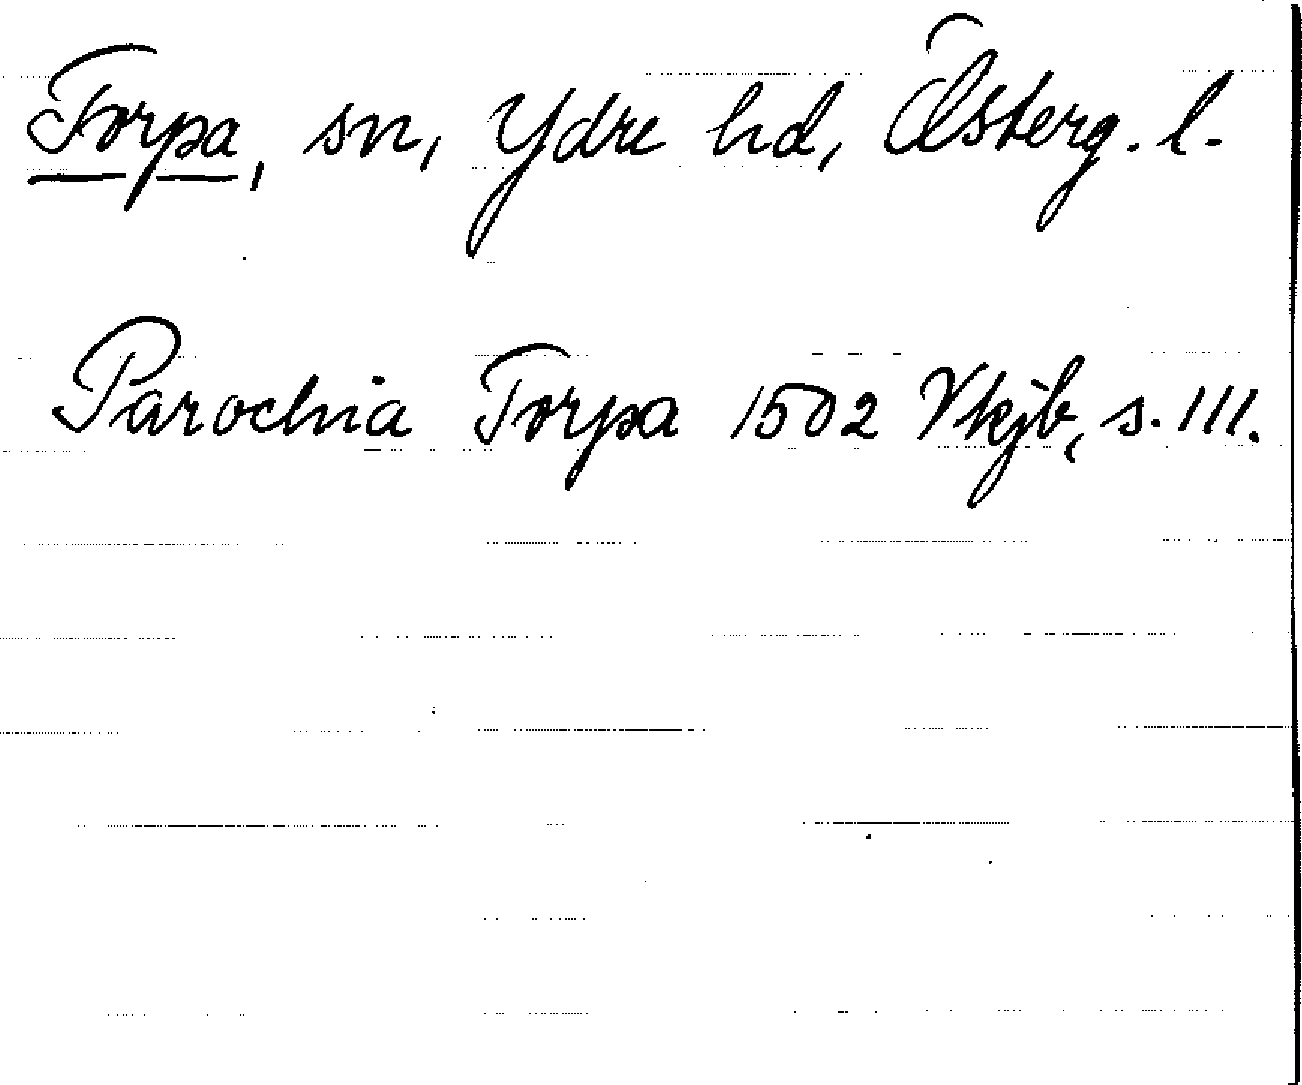 Torpa, sn, Ydre hd, Österg. l.
Parochia Torpa 1502 Vkjb, s. 111.